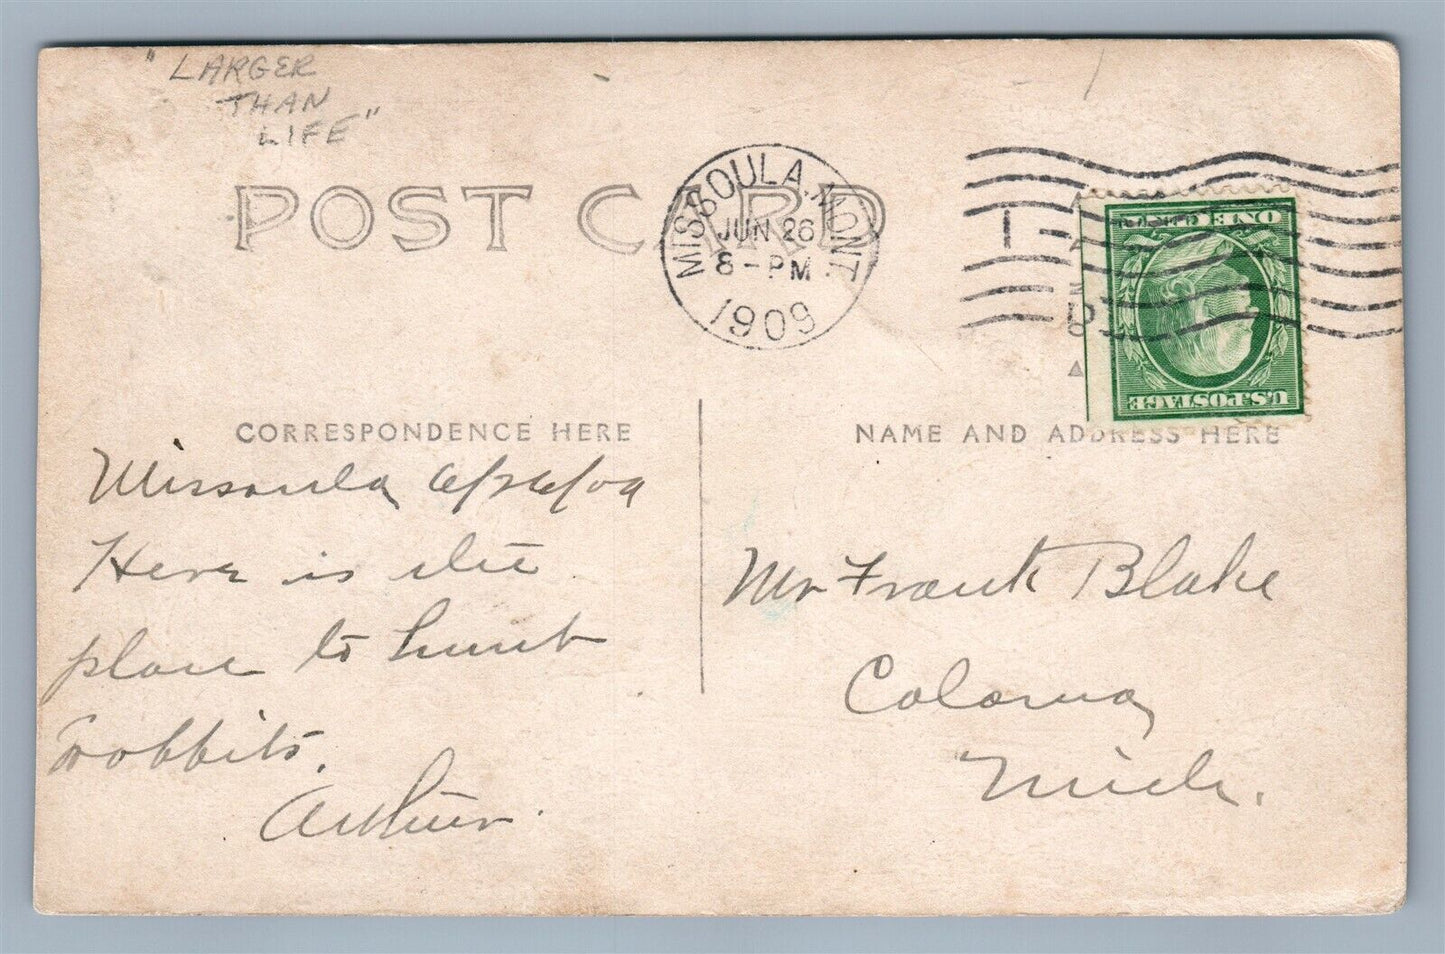 "LARGER
THAN
LIFE"
POST CARD
MISSOULA, MONT.
JUN 26
8-PM
1909
1
D
ONE CENT
U.S. POSTAGE
CORRESPONDENCE HERE
NAME AND ADDRESS HERE
Missoula 6/26/09
Here is the
place to hunt
rabbits.
Arthur.
Mr Frank Blake
Coloma
Mich.